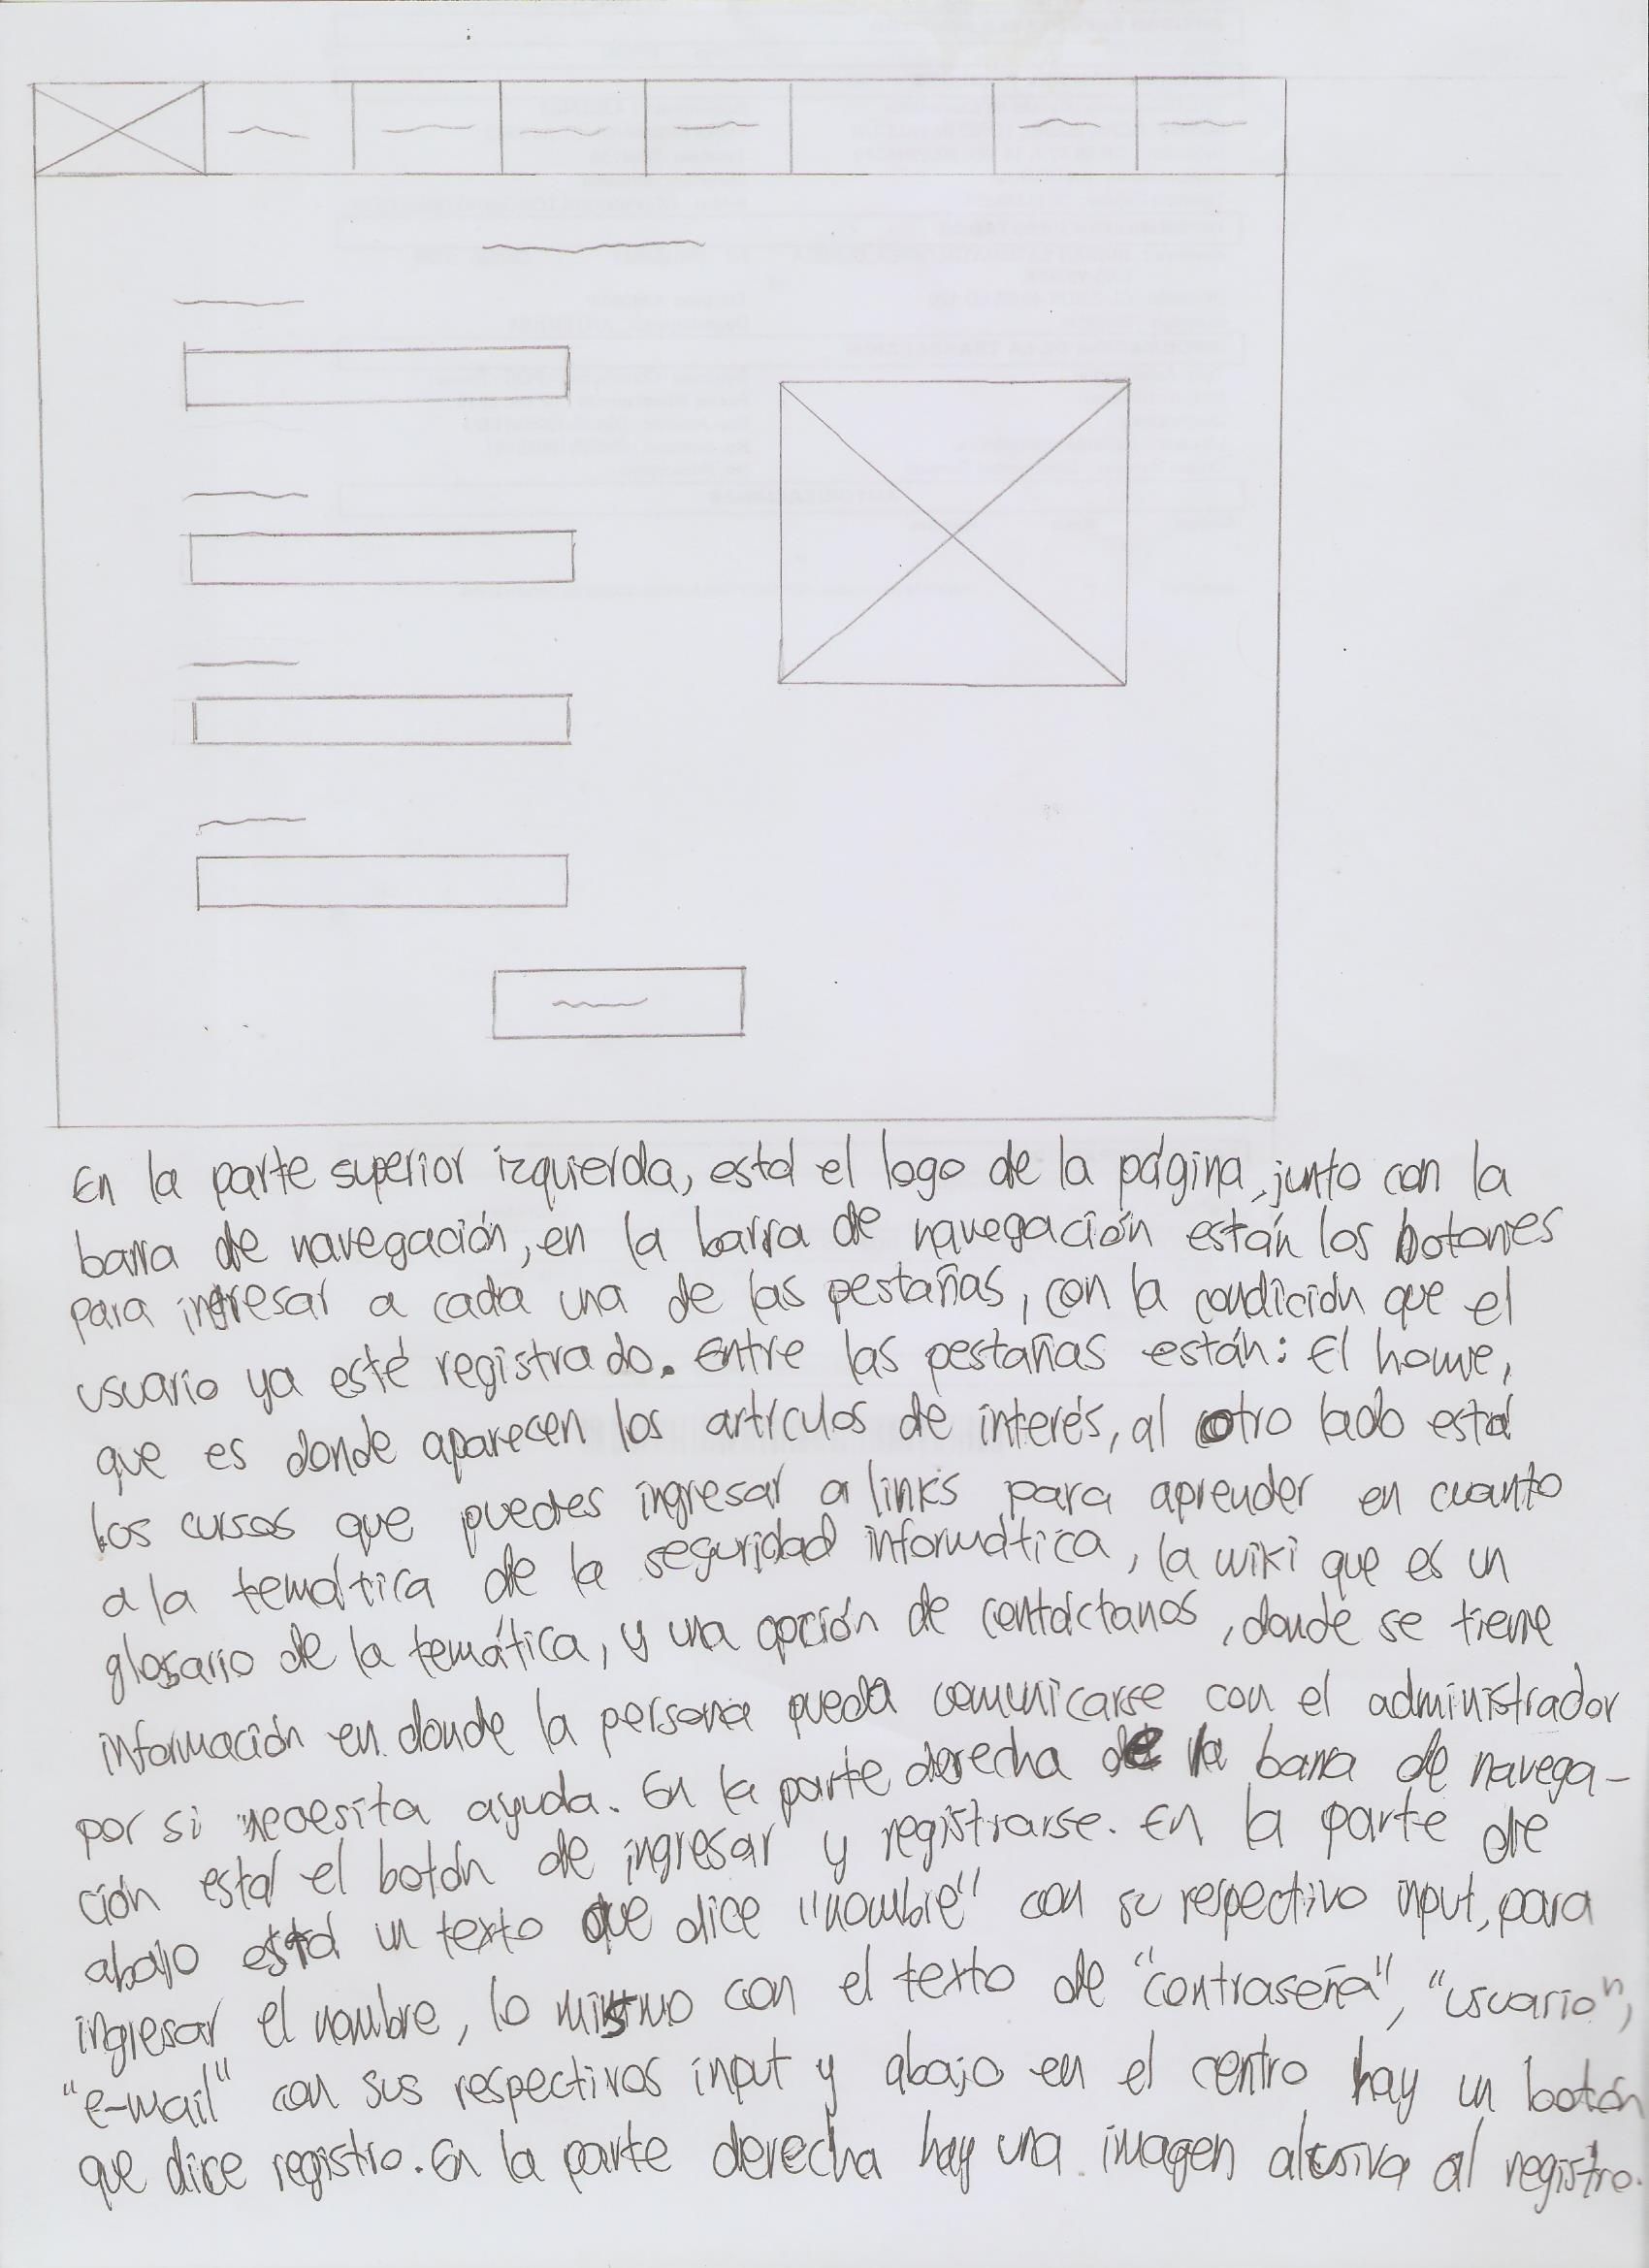 En la parte superior izquierda, está el logo de la página, junto con la
barra de navegación, en la barra de navegación están los botones
para ingresar a cada una de las pestañas, con la condición que el
usuario ya esté registrado. Entre las pestañas están: El home,
que es donde aparecen los artículos de interés, al otro lado está
los cursos que puedes ingresar a links para aprender en cuanto
a la temática de la seguridad informática, la wiki que es un
glosario de la temática, y una opción de contáctanos, donde se tiene
información en donde la persona pueda comunicarse con el administrador
por si necesita ayuda. En la parte derecha de la barra de navega-
ción está el botón de ingresar y registrarse. En la parte de
abajo está un texto que dice "nombre" con su respectivo input, para
ingresar el nombre, lo mismo con el texto de "contraseña", "usuario",
"e-mail" con sus respectivos input y abajo en el centro hay un botón
que dice registro. En la parte derecha hay una imagen alusiva al registro.